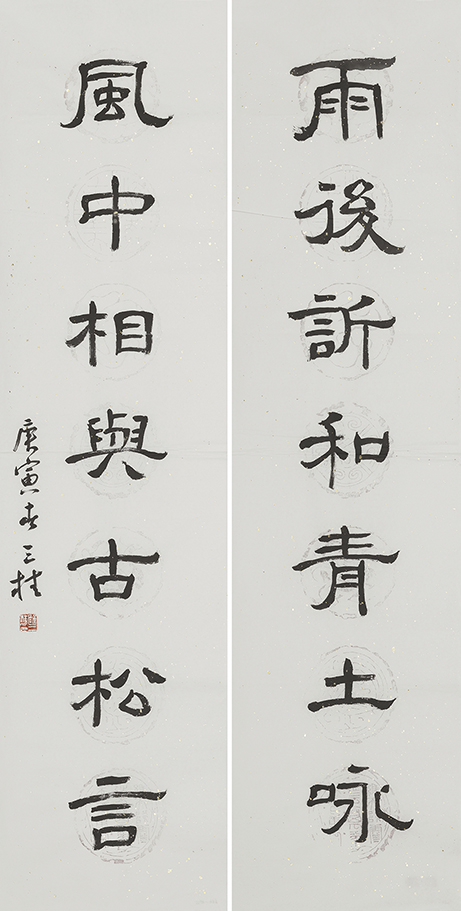 雨後訢和青土咏
風中相與古松言
庚寅春三桂